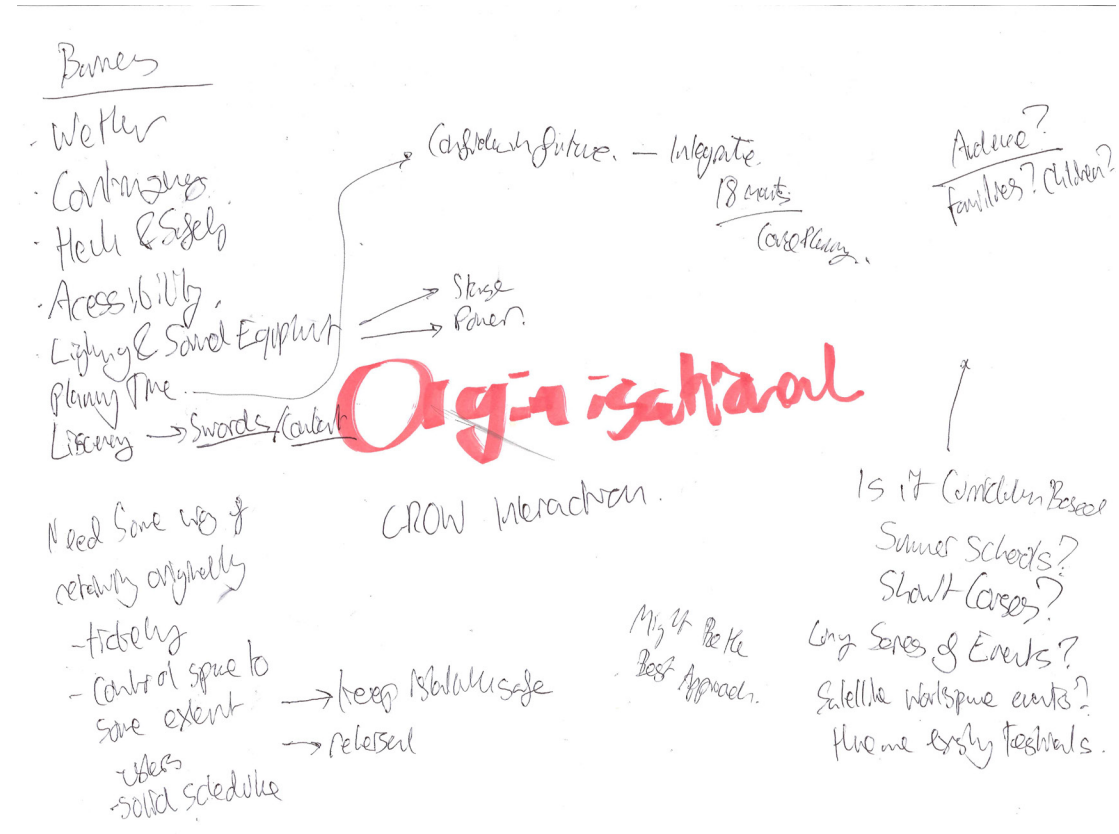 Barriers
- Wether
- Contingency
- Health & Safety
- Acessibility.
Lighting & Sound Equipment
Storage
Power.
Planning Time
Liscencing → Swords/Content
Consider in future. — Integrate.
18 months
Course Planning.
Audience?
families? Children?
Orginisational
CROW Interaction.
Need Some way of
retaining originally
- ticketing
- Control space to
some extent
→ keep installation safe
→ rehersal
- users
- solid schedulke
Might Be the
Best Approach.
Is it Curriculum Based
Summer Schools?
Short Courses?
Long Series of Events?
Satellite workspace events?
theme exisity festivals.